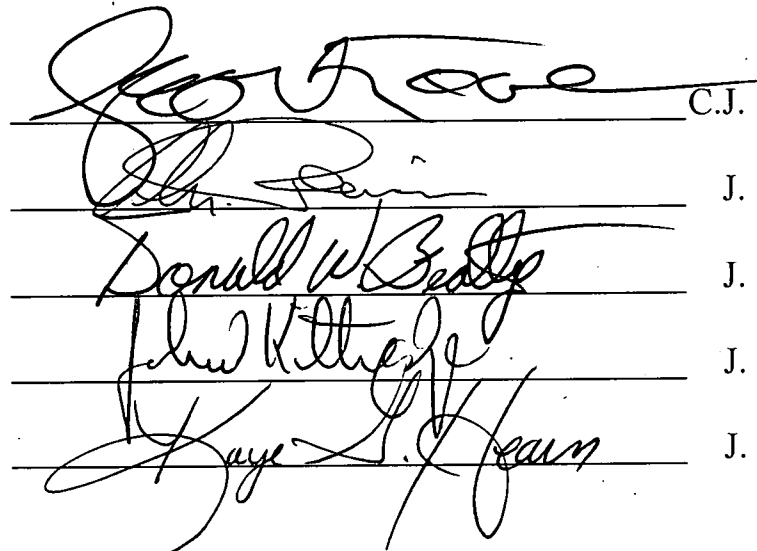 Jean H. Toal C.J.
J.
Donald W. Beatty J.
John Kittredge J.
Kaye G. Hearn J.